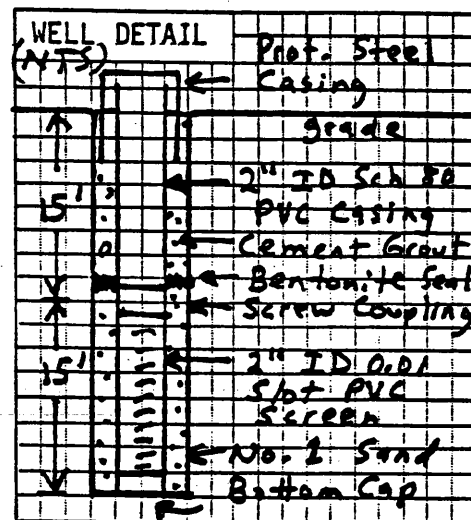 WELL DETAIL
(NTS)
Prot. Steel
Casing
grade
15'
2" ID Sch 80
PVC Casing
Cement Grout
Bentonite Seal
Screw Coupling
15'
2" ID 0.01
Slot PVC
Screen
No. 1 Sand
Bottom Cap